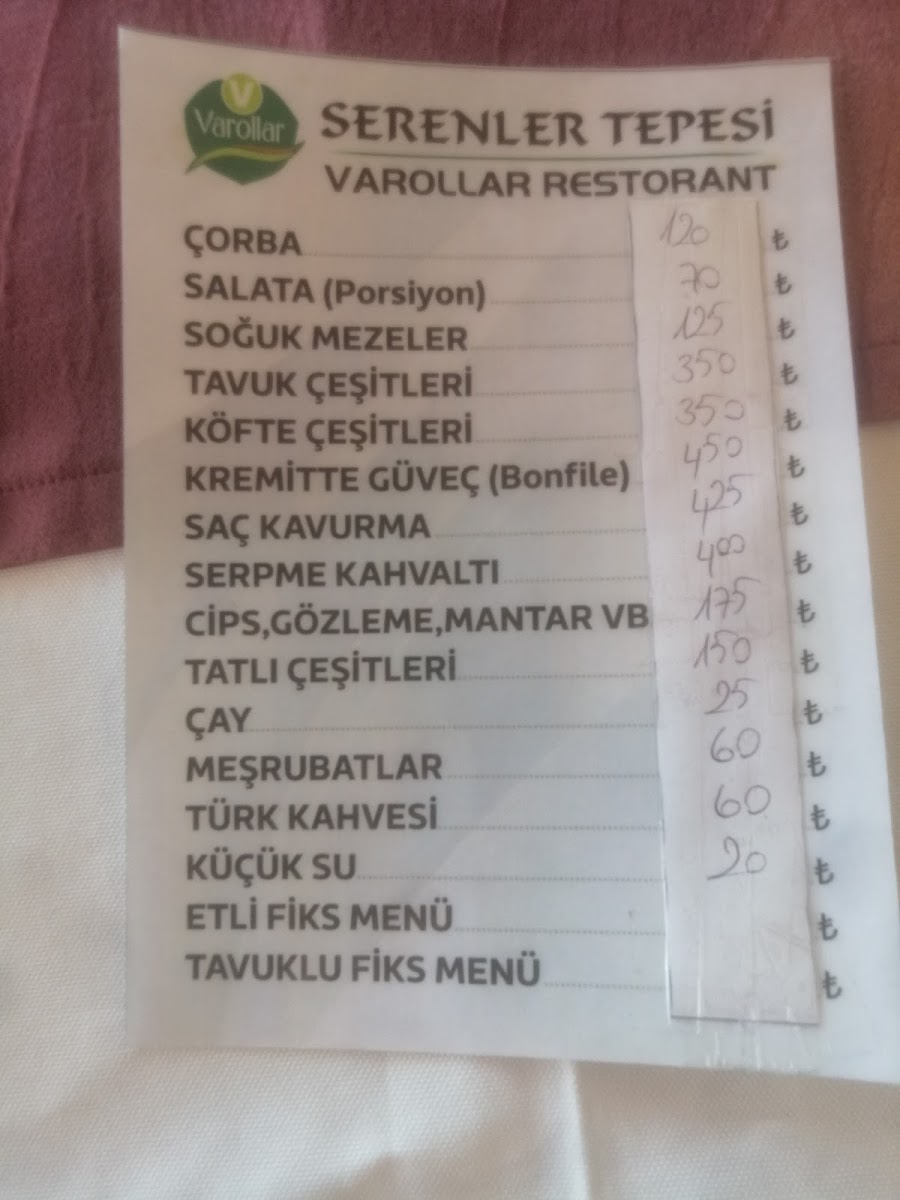 V
Varollar
SERENLER TEPESİ
VAROLLAR RESTORANT
ÇORBA 120 ₺
SALATA (Porsiyon) 70 ₺
SOĞUK MEZELER 125 ₺
TAVUK ÇEŞİTLERİ 350 ₺
KÖFTE ÇEŞİTLERİ 350 ₺
KREMİTTE GÜVEÇ (Bonfile) 450 ₺
SAÇ KAVURMA 425 ₺
SERPME KAHVALTI 400 ₺
CİPS,GÖZLEME,MANTAR VB 175 ₺
TATLI ÇEŞİTLERİ 150 ₺
ÇAY 25 ₺
MEŞRUBATLAR 60 ₺
TÜRK KAHVESİ 60 ₺
KÜÇÜK SU 20 ₺
ETLİ FİKS MENÜ ₺
TAVUKLU FİKS MENÜ ₺